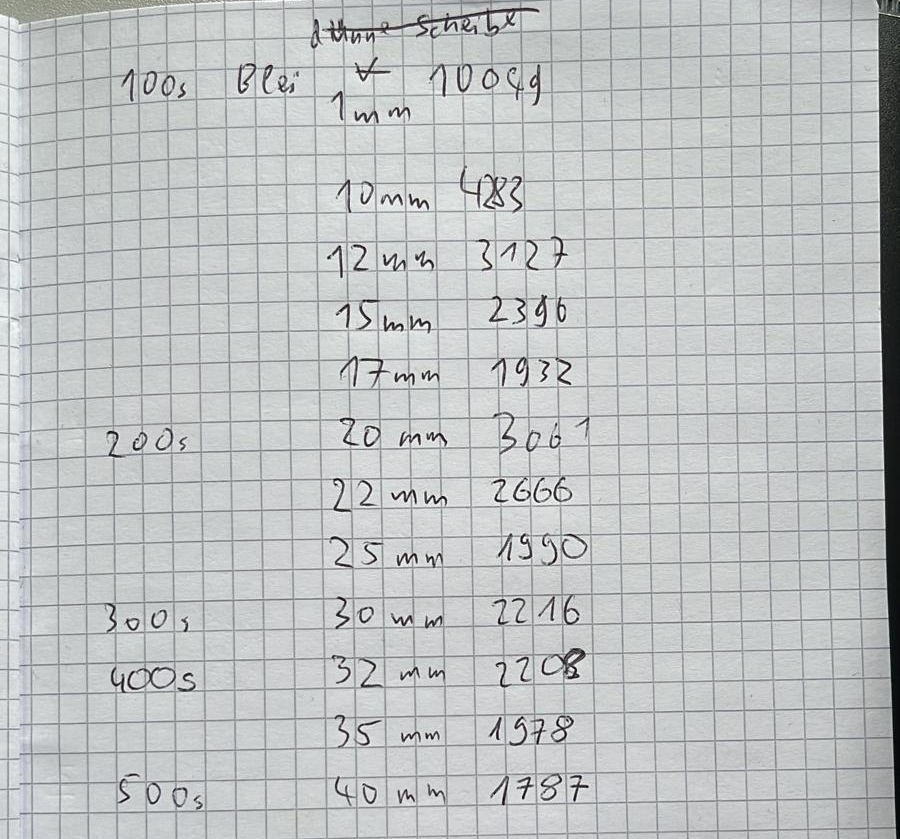 dünne Scheibe
100s Blei 1mm 10099
10mm 4283
12mm 3127
15mm 2396
17mm 1932
200s 20mm 3061
22mm 2666
25mm 1990
300s 30mm 2216
400s 32mm 2208
35mm 1978
500s 40mm 1787